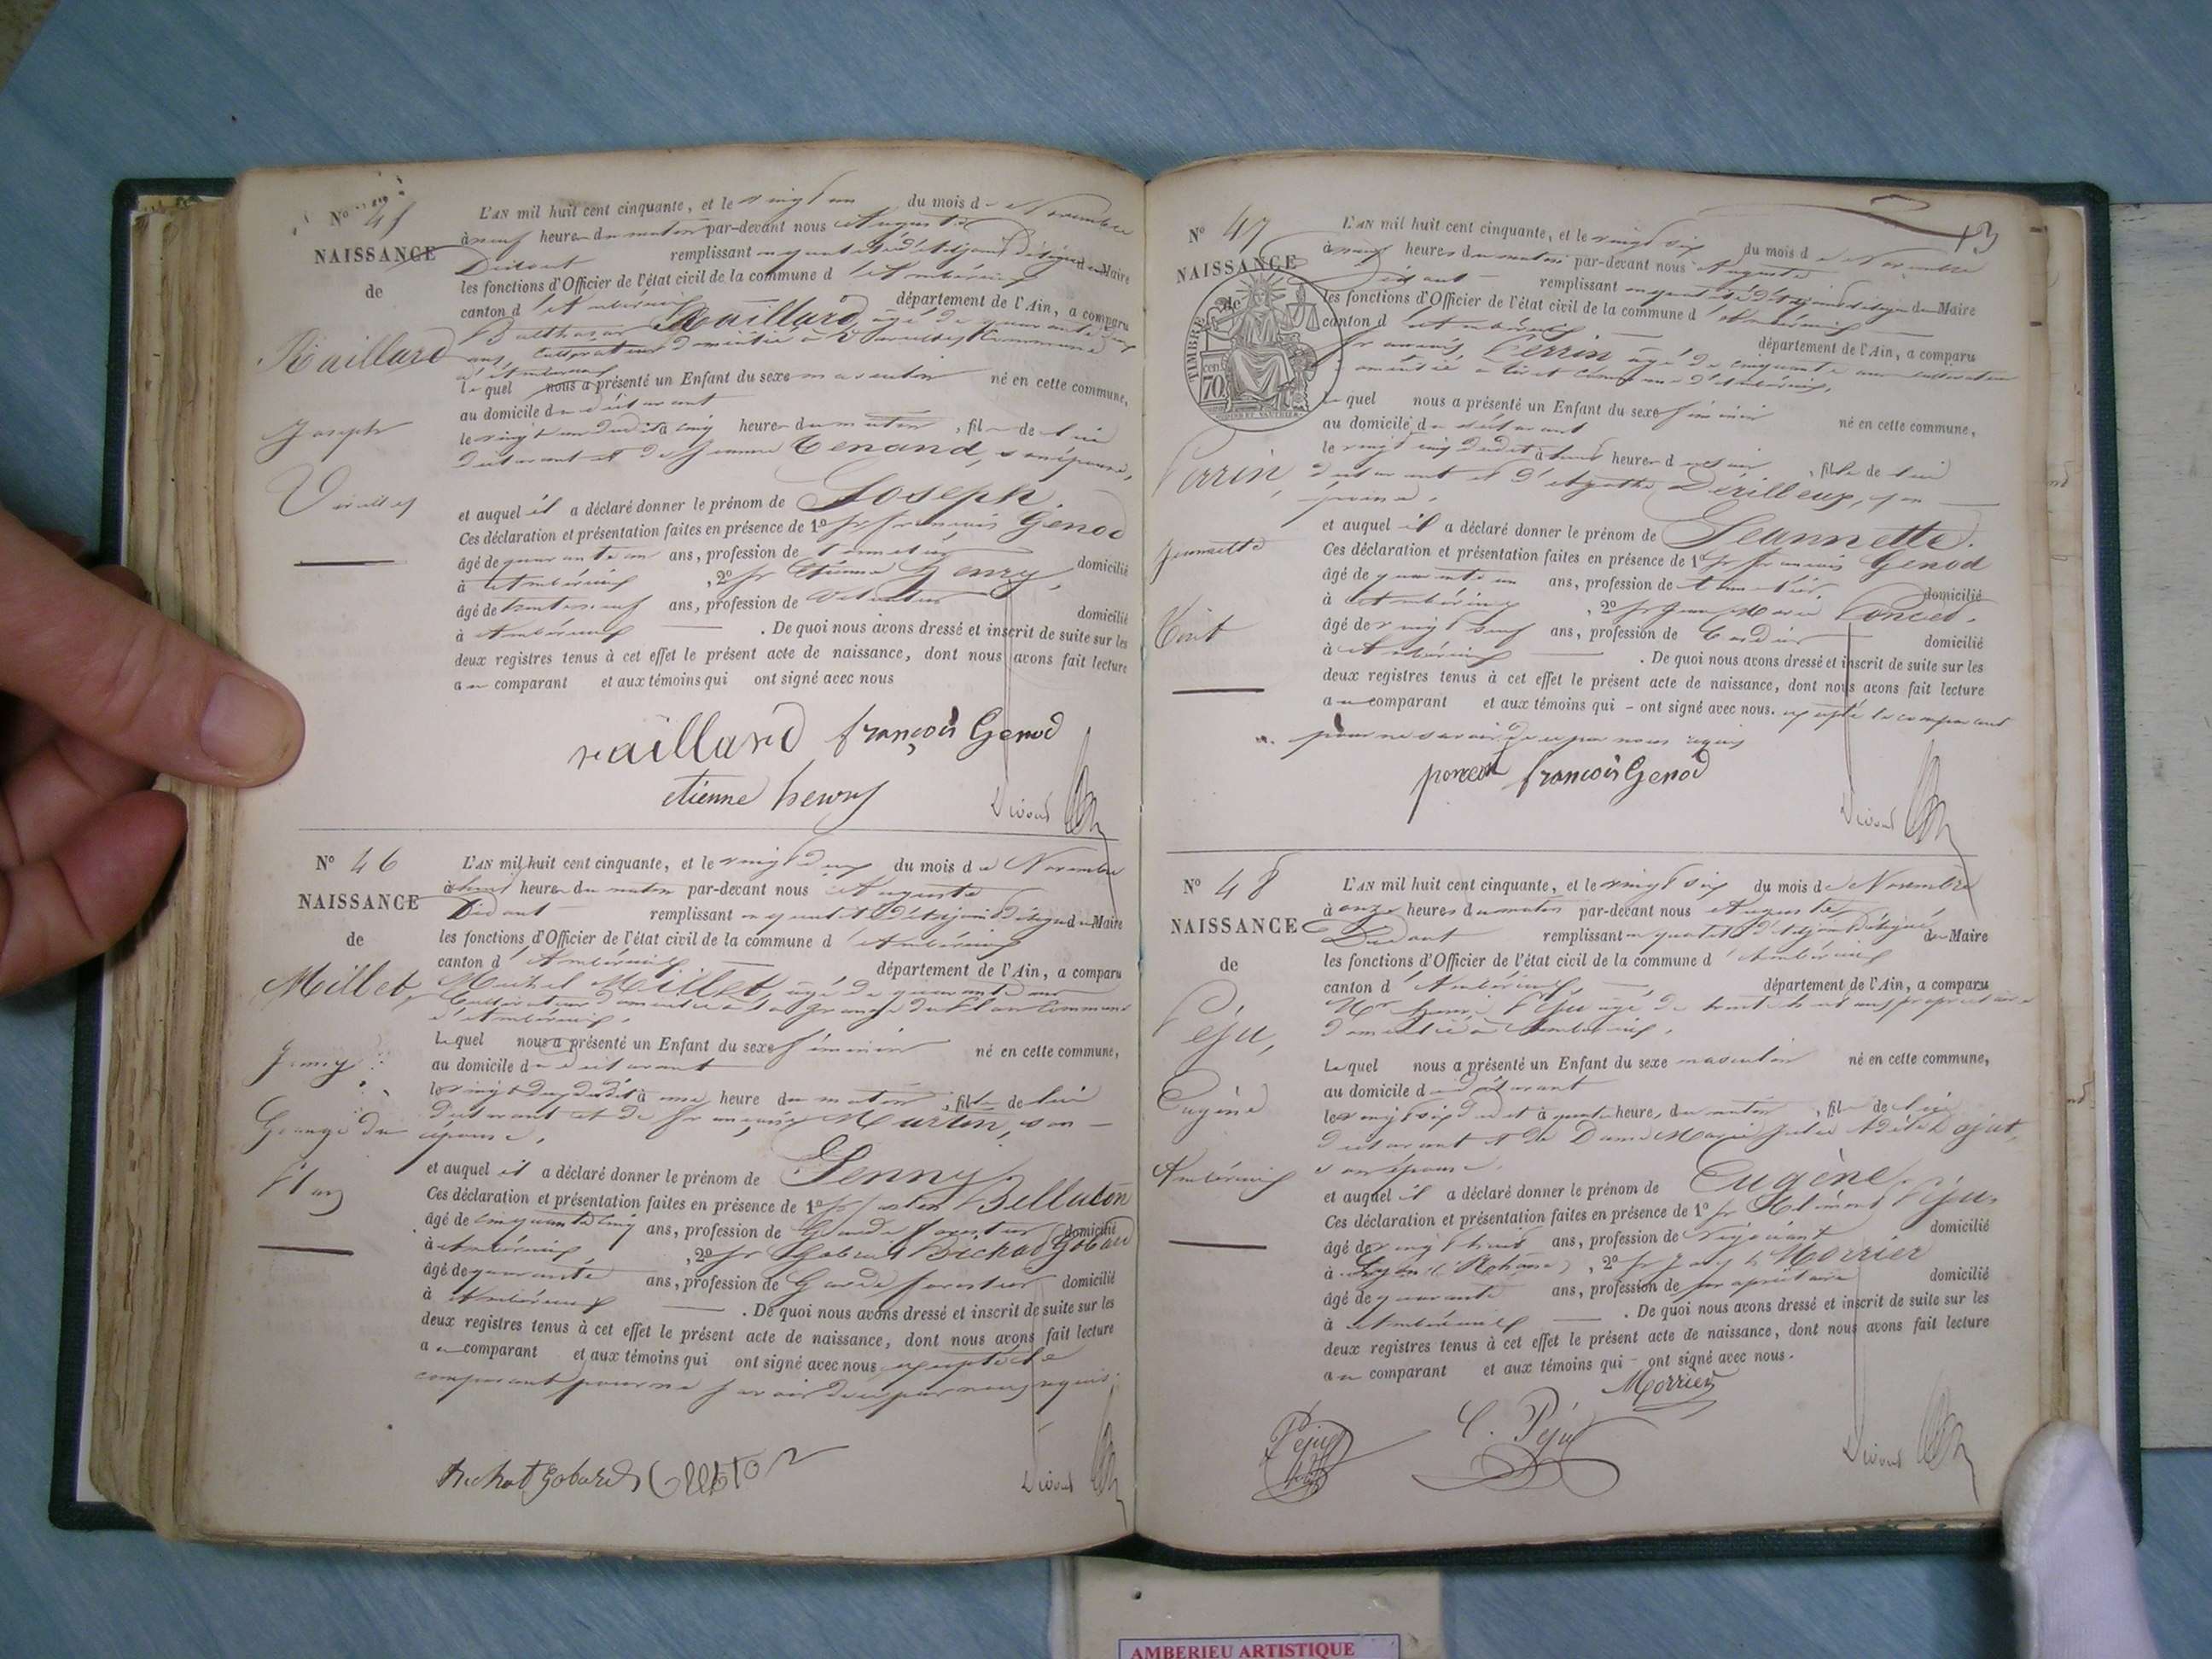 N° 45
NAISSANCE
de
Raillard
Joseph
L'AN mil huit cent cinquante, et le vingt un du mois de Novembre
à neuf heures du matin par-devant nous Auguste
Didout remplissant en qualité d'Adjoint délégué du Maire
les fonctions d'Officier de l'état civil de la commune d'Ambérieux
canton d'Ambérieux département de l'Ain, a comparu
Balthazar Raillard, âgé de quarante
ans, cultivateur domicilié à commune
d'Ambérieux
lequel nous a présenté un Enfant du sexe masculin né en cette commune,
au domicile du déclarant
le vingt un dudit à cinq heures du matin, fils de lui
déclarant et de Jeanne Tenand, son épouse,
et auquel il a déclaré donner le prénom de Joseph.
Ces déclaration et présentation faites en présence de 1° Sr François Genod
âgé de quarante un ans, profession de domicilié
à Ambérieux, 2° Sr Etienne Henry,
âgé de trente neuf ans, profession de domicilié
à Ambérieux . De quoi nous avons dressé et inscrit de suite sur les
deux registres tenus à cet effet le présent acte de naissance, dont nous avons fait lecture
au comparant et aux témoins qui ont signé avec nous
raillard françois Genod
etienne henry
N° 46
NAISSANCE
de
Millet,
Jenny
Grange du
Plan
L'AN mil huit cent cinquante, et le vingt deux du mois de Novembre
à heures du matin par-devant nous Auguste
Didout remplissant en qualité d'Adjoint délégué du Maire
les fonctions d'Officier de l'état civil de la commune d'Ambérieux
canton d'Ambérieux département de l'Ain, a comparu
Michel Millet, âgé de quarante ans
cultivateur domicilié à la Grange du Plan commune
d'Ambérieux,
Lequel nous a présenté un Enfant du sexe féminin né en cette commune,
au domicile du déclarant
le vingt deux dudit à une heure du matin, fille de lui
déclarant et de Françoise Martin, son
épouse,
et auquel il a déclaré donner le prénom de Jenny,
Ces déclaration et présentation faites en présence de 1° Sr Belluton
âgé de cinquante cinq ans, profession de Garde forestier domicilié
à Ambérieux, 2° Sr Brichod Gobard
âgé de quarante ans, profession de Garde forestier domicilié
à Ambérieux . De quoi nous avons dressé et inscrit de suite sur les
deux registres tenus à cet effet le présent acte de naissance, dont nous avons fait lecture
au comparant et aux témoins qui ont signé avec nous excepté le
comparant pour ne savoir de ce par nous requis.
N° 47
NAISSANCE
de
TIMBRE
70
Perrin,
Jeannette
Tiret
13
L'AN mil huit cent cinquante, et le vingt six du mois de Novembre
à neuf heures du matin par-devant nous Auguste
Didout remplissant en qualité d'Adjoint délégué du Maire
les fonctions d'Officier de l'état civil de la commune d'Ambérieux
canton d'Ambérieux département de l'Ain, a comparu
Sr Perrin âgé de cinquante ans cultivateur
domicilié à Tiret commune d'Ambérieux,
Lequel nous a présenté un Enfant du sexe féminin né en cette commune,
au domicile du déclarant
le vingt cinq dudit à heures du soir, fille de lui
déclarant et d'Agathe Dérilleux, son
épouse,
et auquel il a déclaré donner le prénom de Jeannette.
Ces déclaration et présentation faites en présence de 1° Sr François Genod
âgé de quarante un ans, profession de domicilié
à Ambérieux, 2° Sr Jean Marie Poncet,
âgé de vingt neuf ans, profession de domicilié
à Ambérieux . De quoi nous avons dressé et inscrit de suite sur les
deux registres tenus à cet effet le présent acte de naissance, dont nous avons fait lecture
au comparant et aux témoins qui - ont signé avec nous. excepté le comparant
pour ne savoir de ce par nous requis
poncet françois Genod
N° 48
NAISSANCE
de
Péju,
Eugène
Ambérieux
L'AN mil huit cent cinquante, et le vingt six du mois de Novembre
à onze heures du matin par-devant nous Auguste
Didout remplissant en qualité d'Adjoint délégué du Maire
les fonctions d'Officier de l'état civil de la commune d'Ambérieux
canton d'Ambérieux, département de l'Ain, a comparu
Mr Péju âgé de trente huit ans propriétaire
domicilié à Ambérieux,
Lequel nous a présenté un Enfant du sexe masculin né en cette commune,
au domicile du déclarant
le vingt six dudit à quatre heures, du matin, fils de lui
déclarant et de Dame Marie Julie Adèle Dajat,
son épouse,
et auquel il a déclaré donner le prénom de Eugène,
Ces déclaration et présentation faites en présence de 1° Sr Clément Péju,
âgé de vingt huit ans, profession de négociant domicilié
à Lyon (Rhône), 2° Sr Morrier
âgé de quarante ans, profession de propriétaire domicilié
à Ambérieux . De quoi nous avons dressé et inscrit de suite sur les
deux registres tenus à cet effet le présent acte de naissance, dont nous avons fait lecture
au comparant et aux témoins qui - ont signé avec nous.
Morrier
Péju C. Péju
AMBERIEU ARTISTIQUE